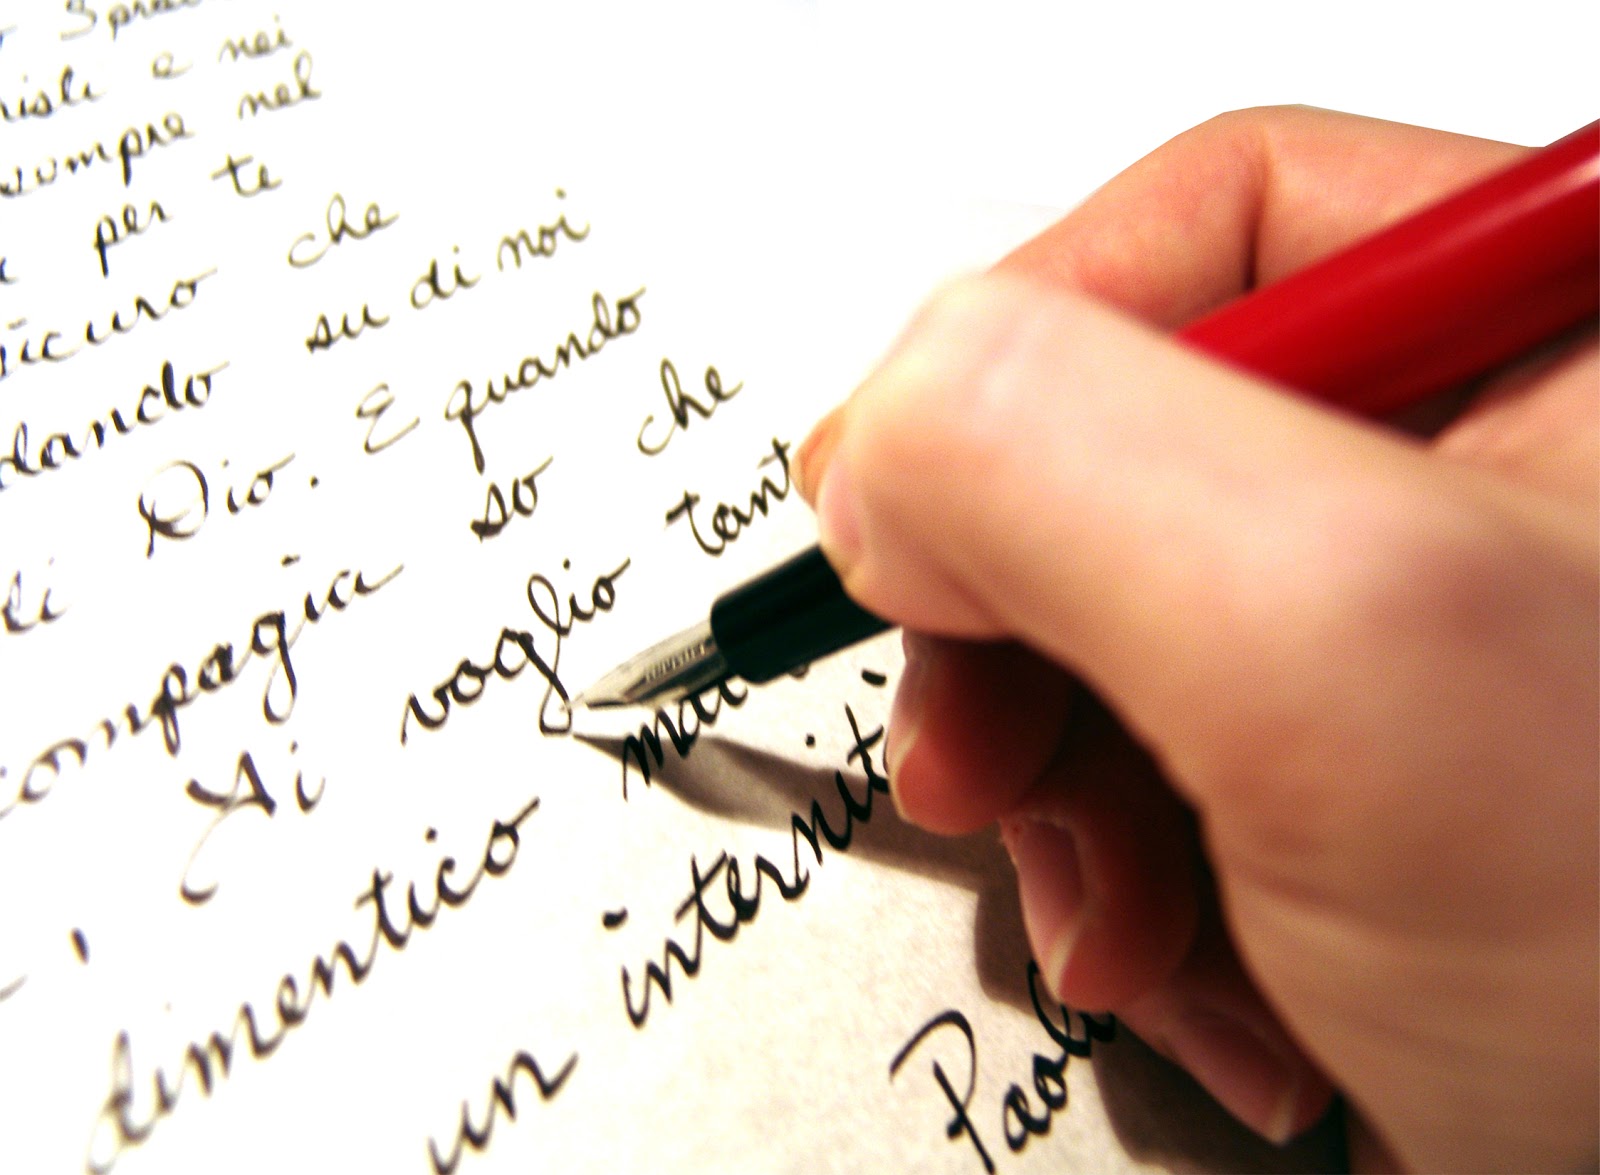 e nei
sempre nel
per te
sicuro che
dando su di noi
Dio. E quando
compagia so che
Ti voglio tant
dimentico mai
un internit
Paol